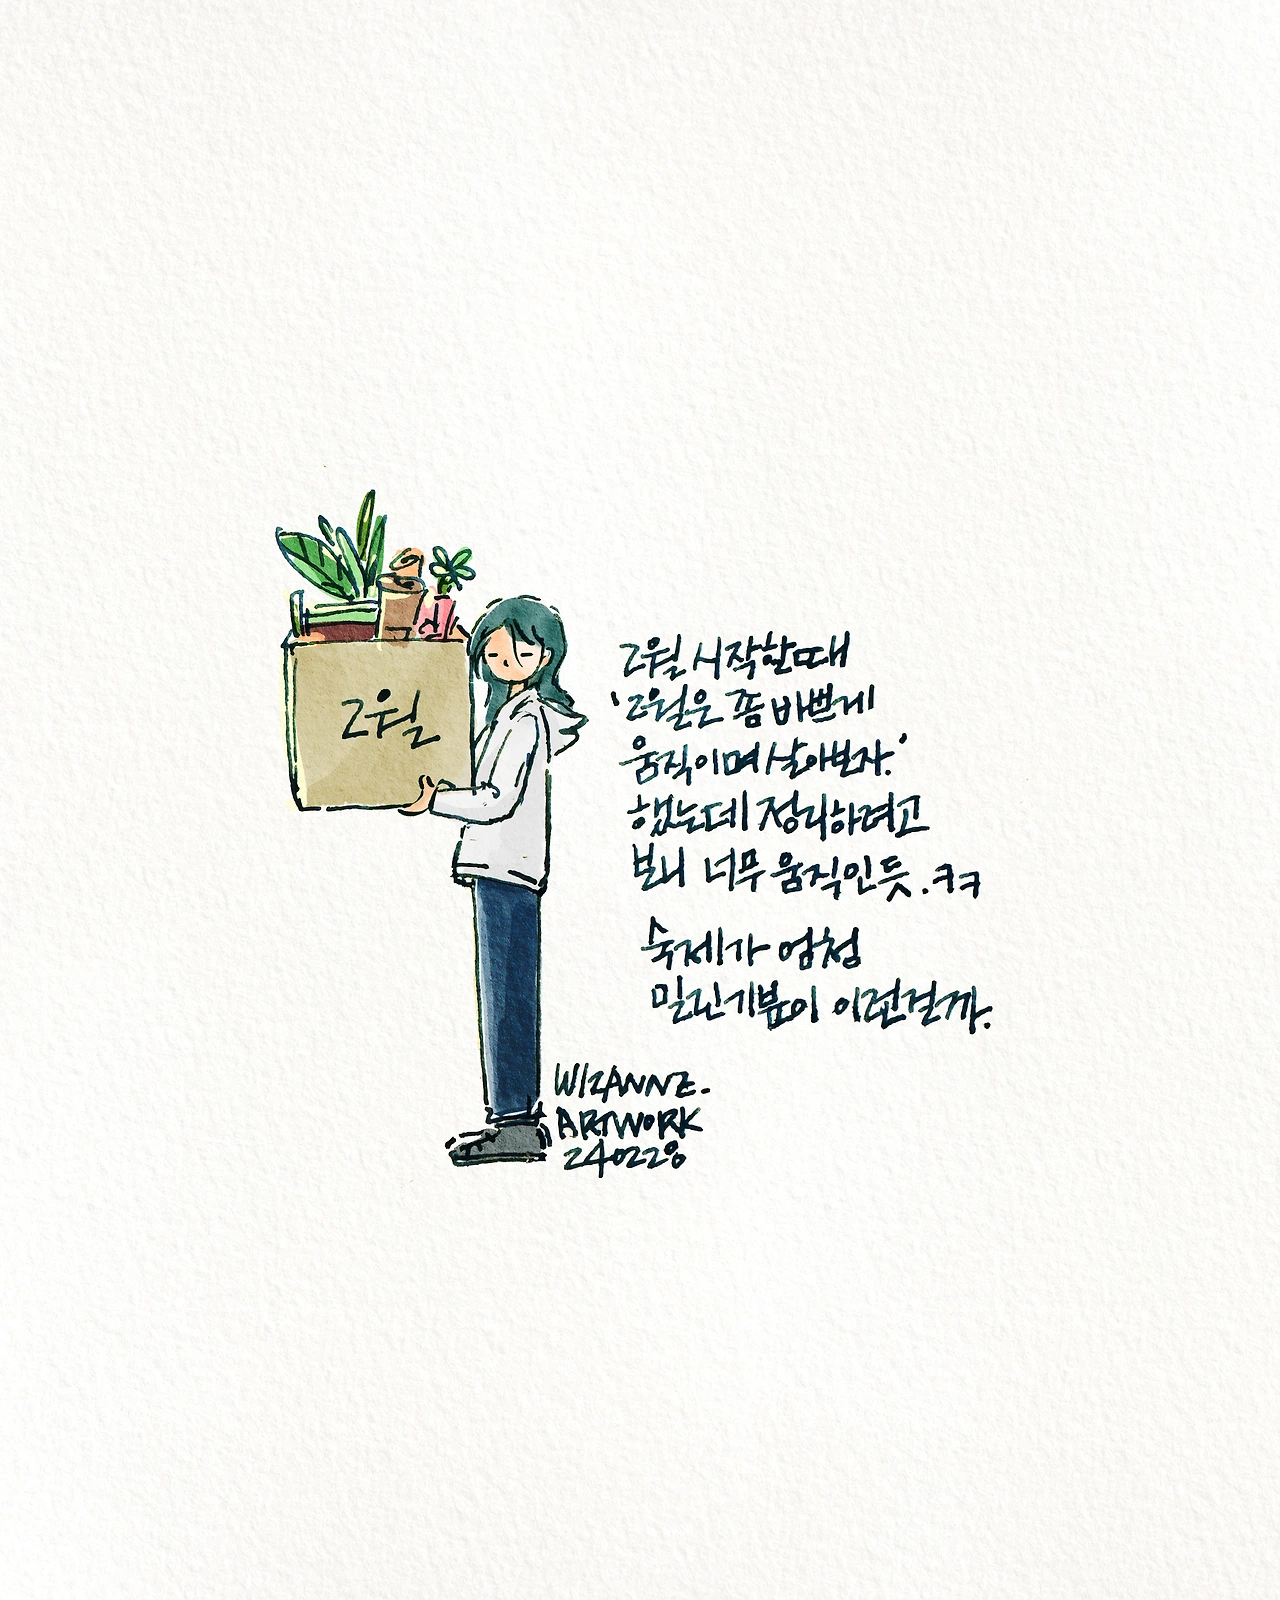 2월
2월 시작할때
'2월은 쫌 바쁘게
움직이며 살아보자.'
했는데 정리하려고
보니 너무 움직인듯.ㅋㅋ
숙제가 엄청
밀린기분이 이런걸까.
WIZANNE.
ARTWORK
240228